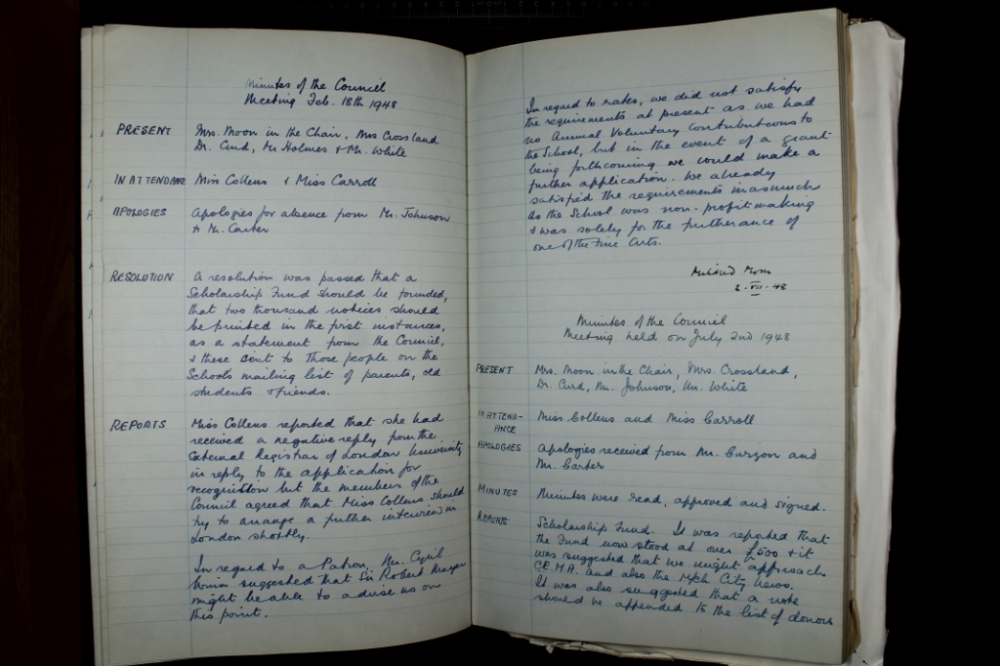 Minutes of the Council
Meeting Feb. 18th 1948
PRESENT Mrs. Moon in the Chair, Mrs Crossland
Dr. Curd, Mr Holmes & Mr. White
IN ATTENDANCE Miss Collens & Miss Carroll
APOLOGIES Apologies for absence from Mr. Johnson
& Mr. Carter
RESOLUTION A resolution was passed that a
Scholarship Fund should be founded,
that two thousand notices should
be printed in the first instance,
as a statement from the Council,
& these sent to those people on the
Schools mailing list of parents, old
students & friends.
REPORTS Miss Collens reported that she had
received a negative reply from the
External Registrar of London University
in reply to the application for
recognition but the members of the
Council agreed that Miss Collens should
try to arrange a further interview in
London shortly.
In regard to a Patron, Mr. Cyril
suggested that Sir Robert
might be able to advise us on
this point.
In regard to rates, we did not satisfy
the requirements at present as we had
no Annual Voluntary Contributions to
the School, but in the event of a grant
being forthcoming we could make a
further application. We already
satisfied the requirements inasmuch
as the School was non-profit making
& was solely for the furtherance of
one of the Fine Arts.
Mildred Moon
2-VII-48
Minutes of the Council
Meeting held on July 2nd 1948
PRESENT Mrs. Moon in the Chair, Mrs. Crossland,
Dr. Curd, Mr. Johnson, Mr. White
IN ATTEND-
ANCE Miss Collens and Miss Carroll
APOLOGIES Apologies received from Mr. Curzon and
Mr. Carter
MINUTES Minutes were read, approved and signed.
REPORTS Scholarship Fund. It was reported that
the Fund now stood at over £500 & it
was suggested that we might approach
C.E.M.A. and also the M/ch City News.
It was also suggested that a note
should be appended to the list of donors